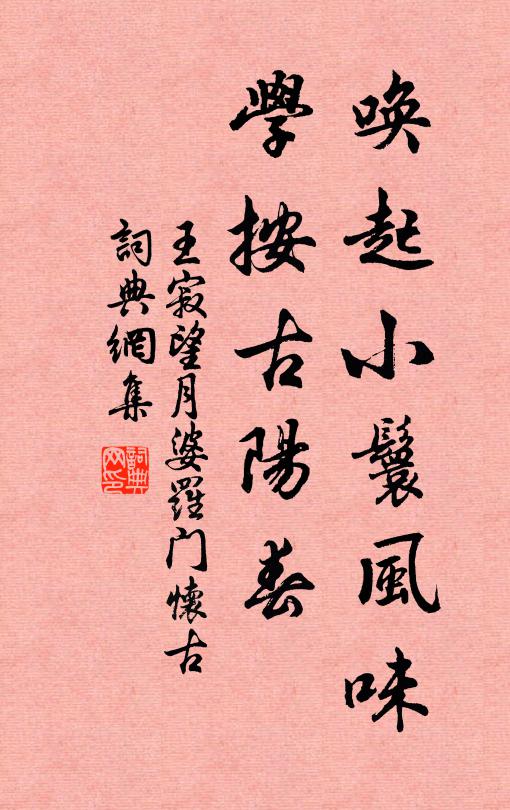 喚起小鬟風味
學按古陽春
王寂望月婆羅門懷古
詞典網集
詞典网印